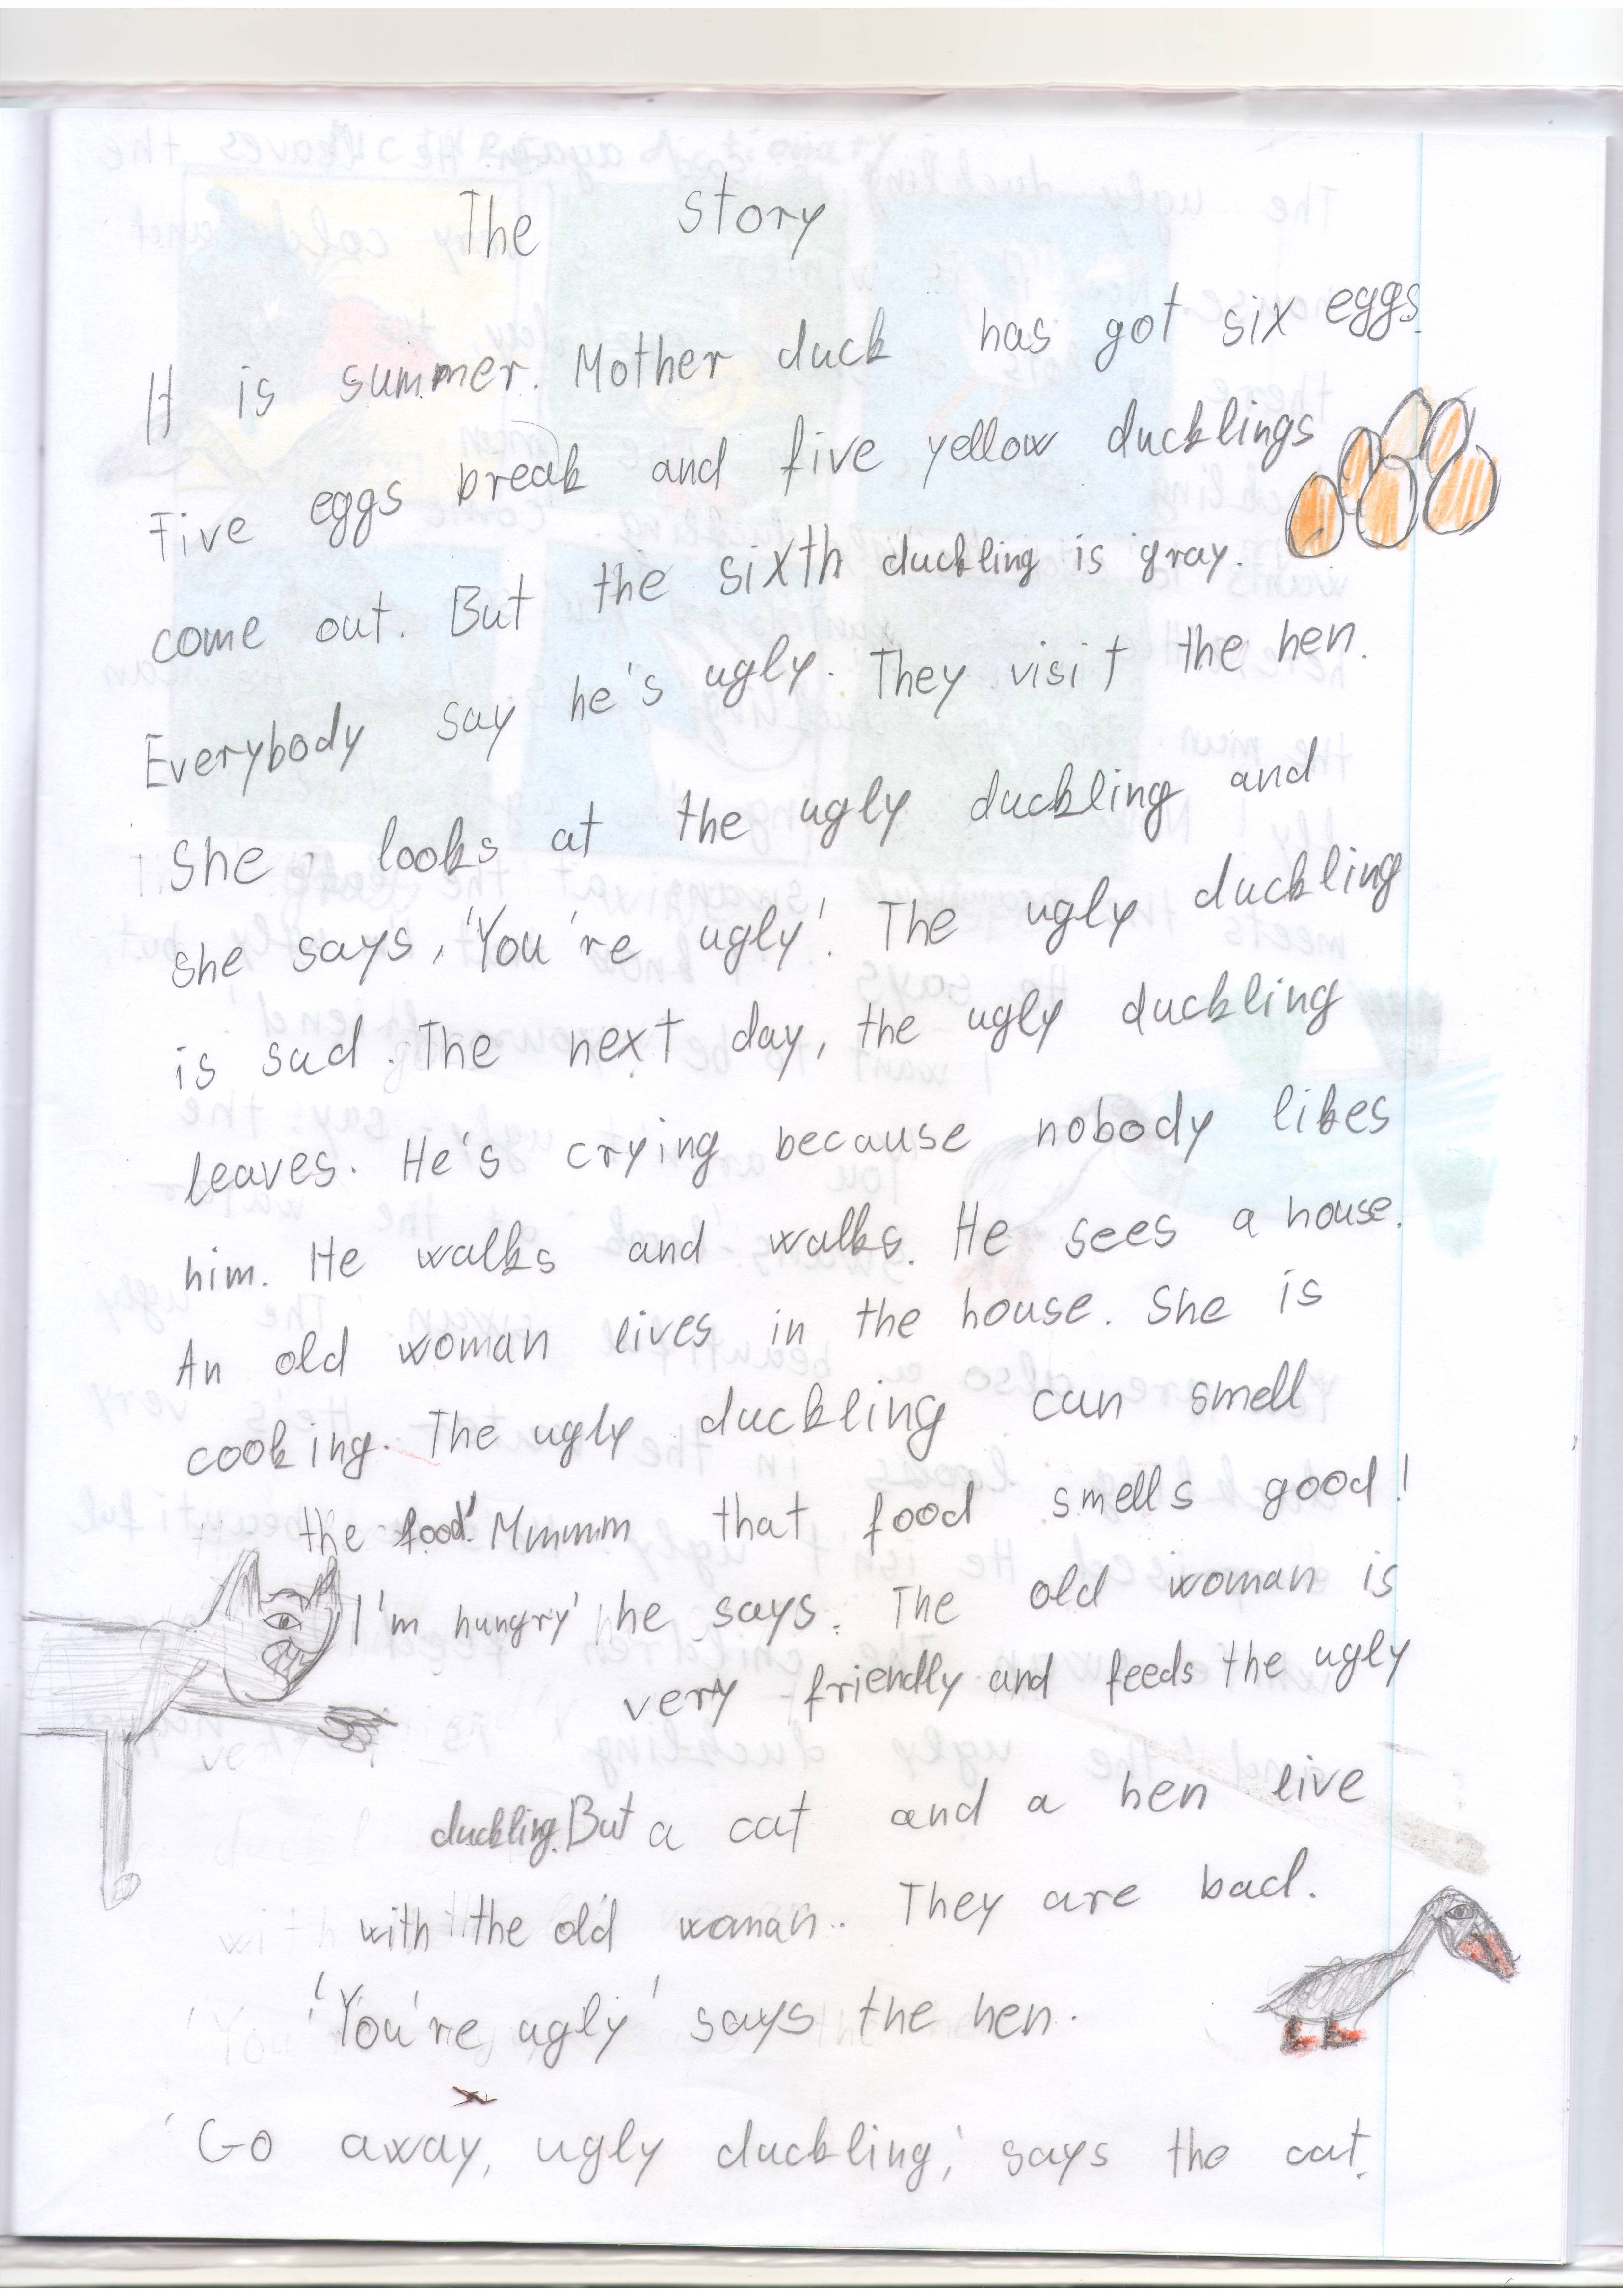 The story
It is summer. Mother duck has got six eggs.
Five eggs break and five yellow ducklings
come out. But the sixth duckling is gray.
Everybody say he's ugly. They visit the hen.
She looks at the ugly duckling and
she says, 'You're ugly'. The ugly duckling
is sad. The next day, the ugly duckling
leaves. He's crying because nobody likes
him. He walks and walks. He sees a house.
An old woman lives in the house. She is
cooking. The ugly duckling can smell
the food.'Mmmmm that food smells good!
I'm hungry' he says. The old woman is
very friendly and feeds the ugly
duckling. But a cat and a hen live
with the old woman. They are bad.
'You're ugly' says the hen.
'Go away, ugly duckling,' says the cat.